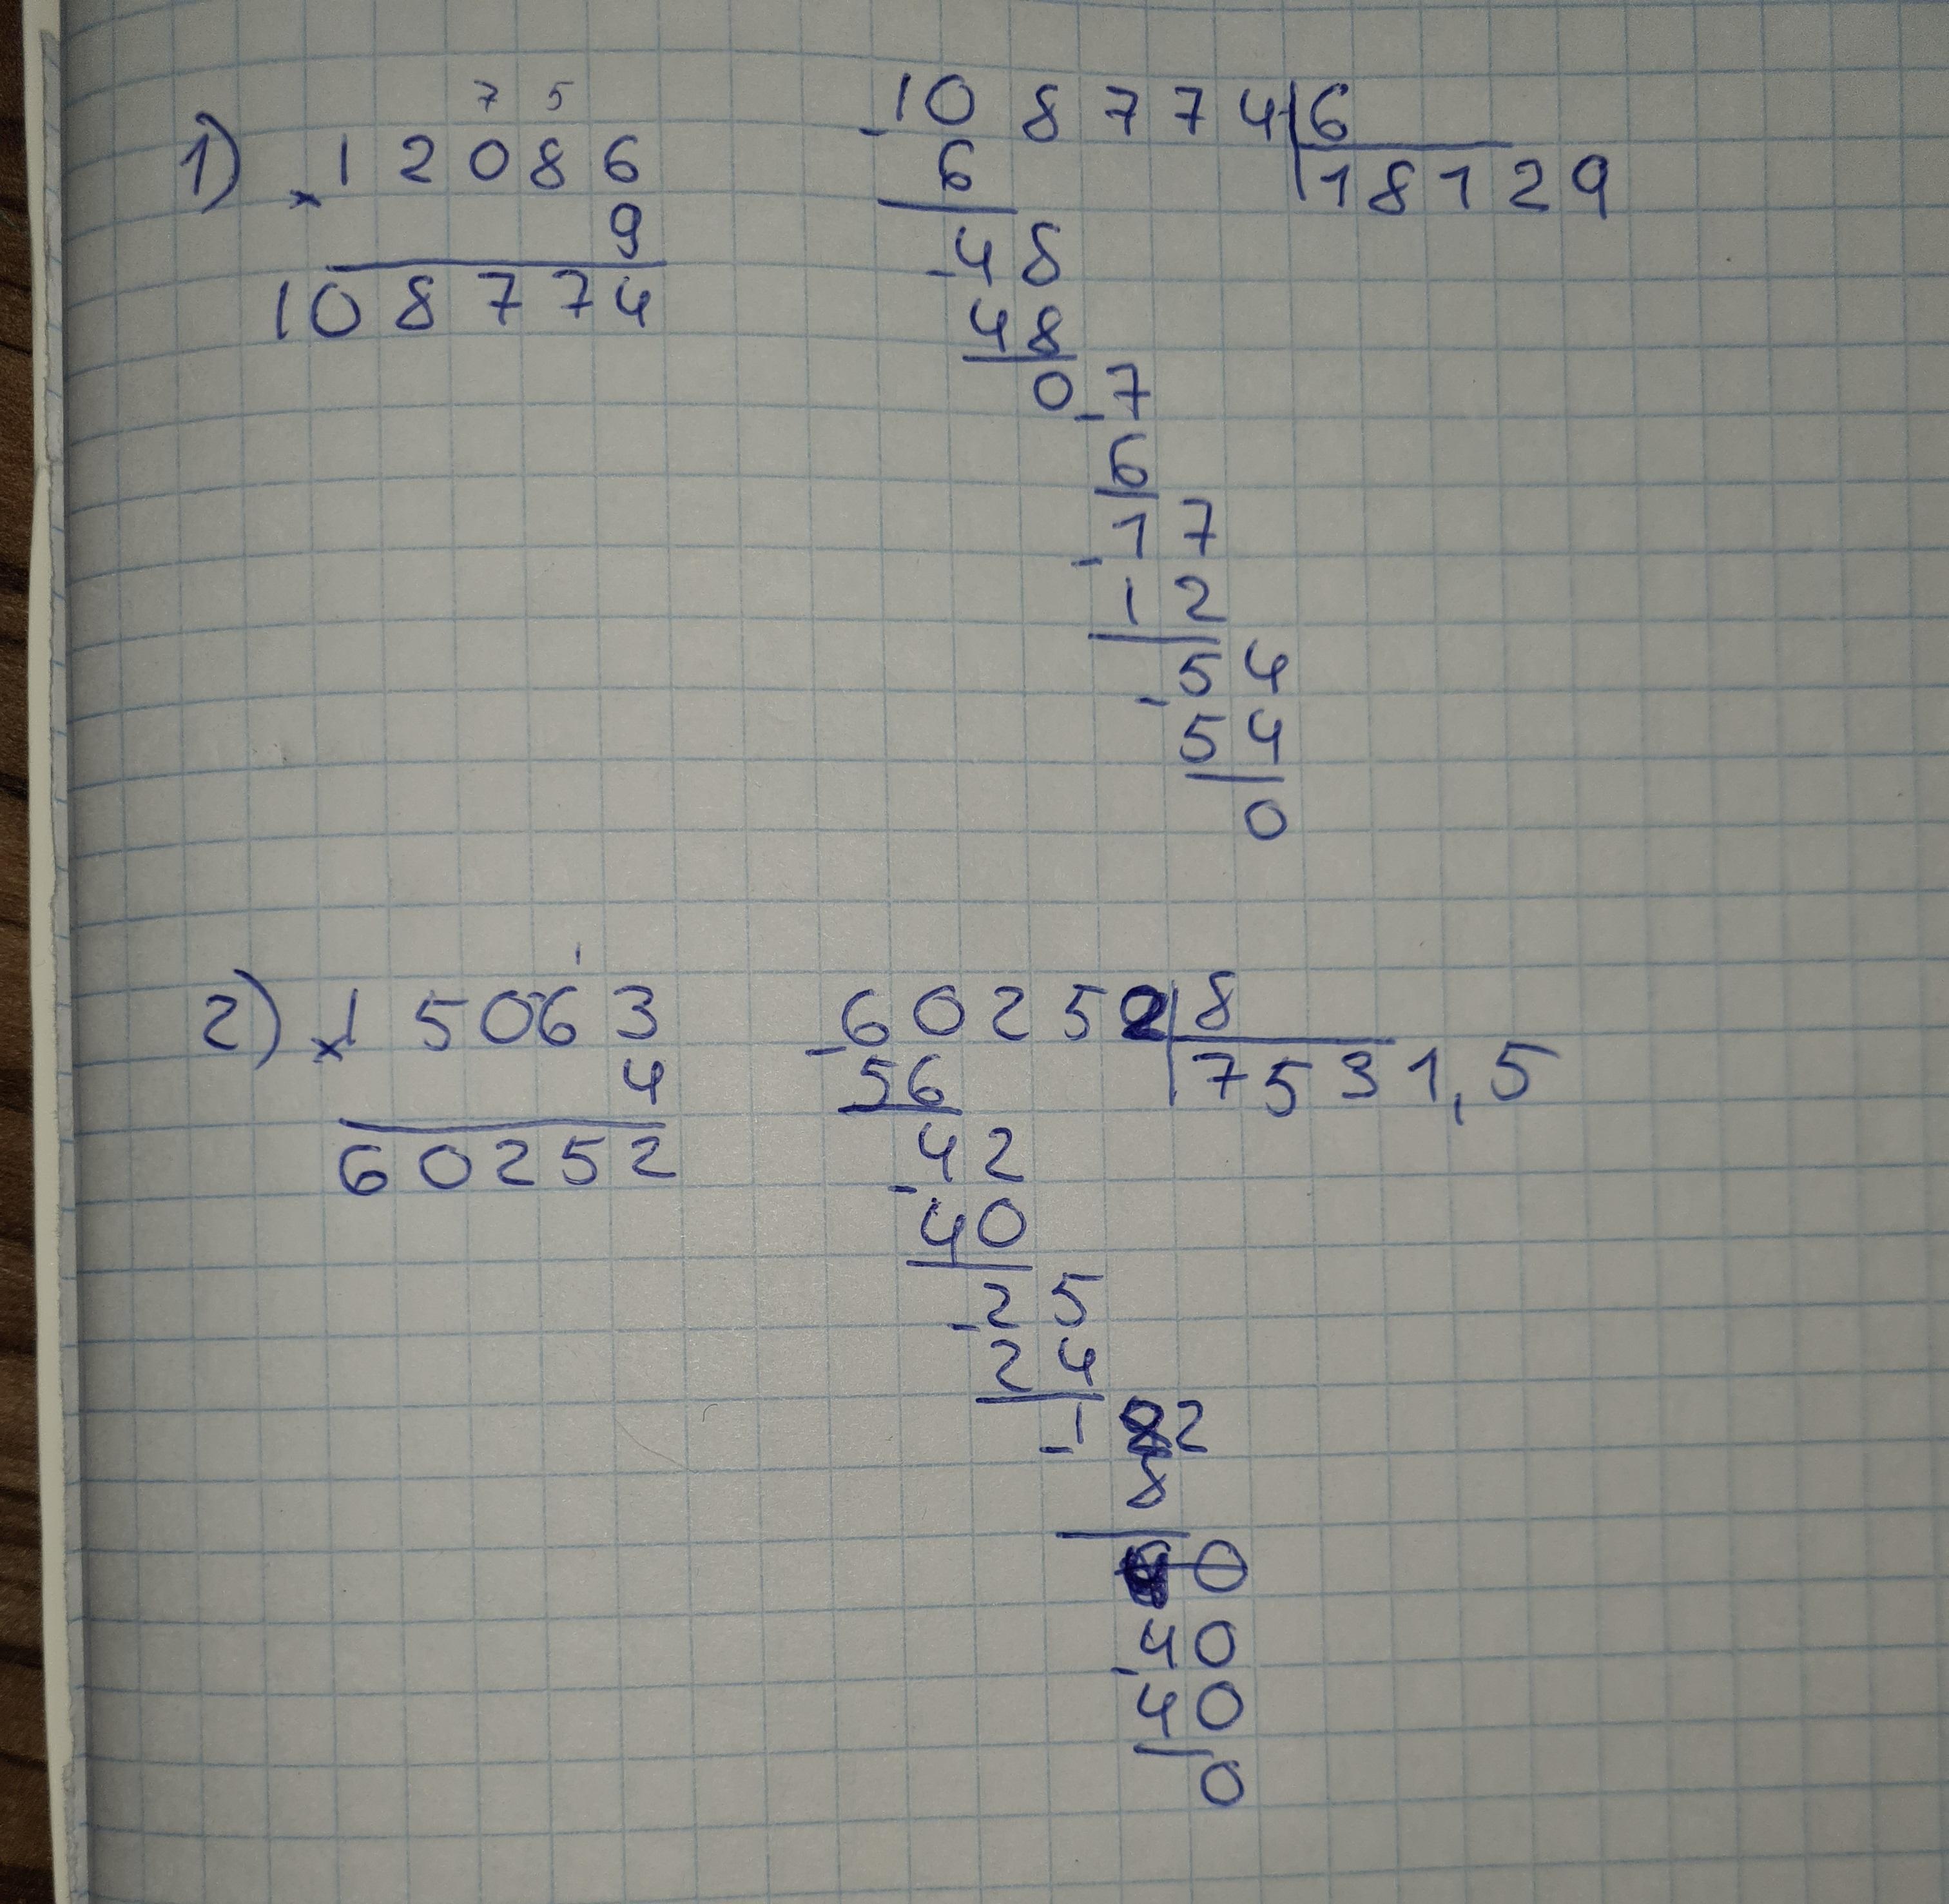 7 5
1) 12086
× 9
108774
-108774|6
6 18129
-48
48
0-7
6
-17
12
-54
54
0
1
2) ×15063
4
60252
-60252|8
56 7531,5
-42
40
-25
24
-1 2
8
0
-40
40
0